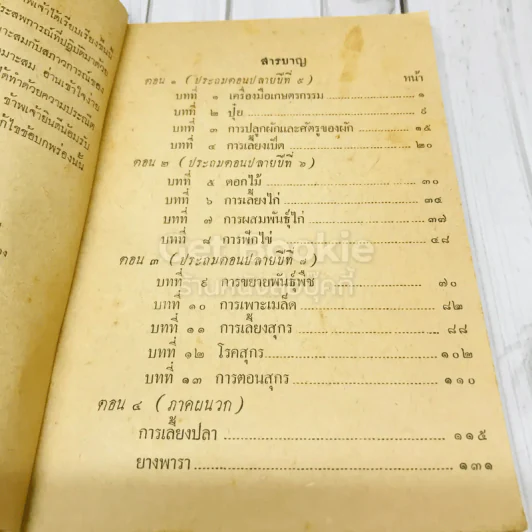 ระสพการณ์ที่ปฏิบัติมาด้วย
าะสมกับสภาวการณ์ของ
มาะสม อ่านเข้าใจง่าย
ได้ทำด้วยความประณีต
ข้าพเจ้ายินดีน้อมรับ
ก้ไขข้อบกพร่องนั้น
สารบาญ
ตอน ๑ (ประถมตอนปลายปีที่ ๕) หน้า
บทที่ ๑ เครื่องมือเกษตรกรรม ๑
บทที่ ๒ ปุ๋ย ๘
บทที่ ๓ การปลูกผักและศัตรูของผัก ๑๕
บทที่ ๔ การเลี้ยงเป็ด ๒๐
ตอน ๒ (ประถมตอนปลายปีที่ ๖)
บทที่ ๕ ดอกไม้ ๓๐
บทที่ ๖ การเลี้ยงไก่ ๓๔
บทที่ ๗ การผสมพันธุ์ไก่ ๓๗
บทที่ ๘ การฟักไข่ ๔๘
ตอน ๓ (ประถมตอนปลายปีที่ ๗)
บทที่ ๙ การขยายพันธุ์พืช ๗๐
บทที่ ๑๐ การเพาะเมล็ด ๘๒
บทที่ ๑๑ การเลี้ยงสุกร ๘๘
บทที่ ๑๒ โรคสุกร ๑๐๒
บทที่ ๑๓ การตอนสุกร ๑๑๐
ตอน ๔ (ภาคผนวก)
การเลี้ยงปลา ๑๑๕
ยางพารา ๑๓๑
Get Bookie
ร้านหนังสือบุ๊คกี้